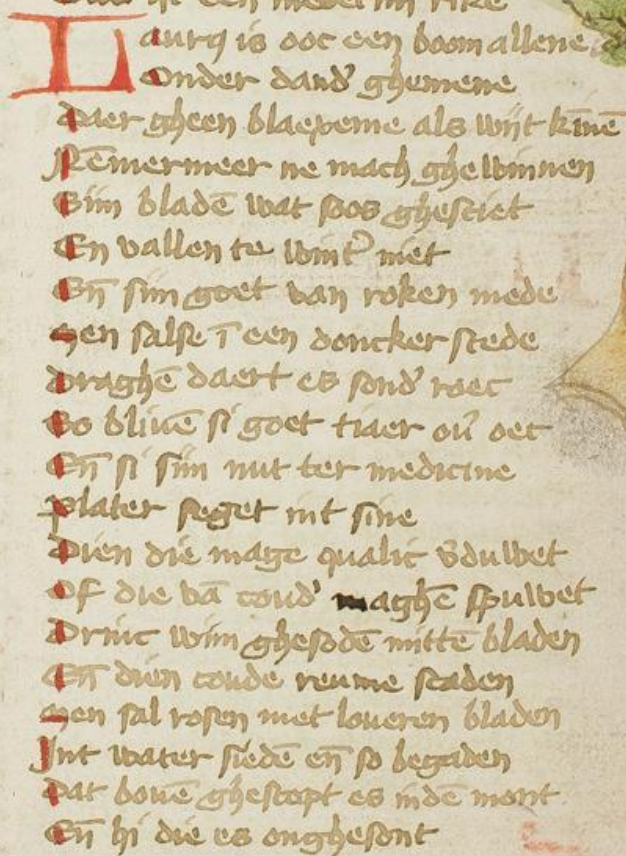 Laurus is ooc een boom allene
Onder dand' ghemene
Daer gheen blaexeme als wijt kinnē
Nēmermeer ne mach ghewinnen
Siin bladē wat soos ghesciet
En vallen te wint' niet
Eñ siin goet van roken mede
Men salse ī een doncker stede
Draghē daert es sond' roec
So bliuē si goet tiaer ou' oec
Eñ si siin nut ter medicine
Plater seget int sine
Dien die mage qualic v'duwet
Of die vā coud' maghē spuwet
Drinc wiin ghesodē mittē bladen
Eñ dien coude reume scaden
Men sal rosen met loueren bladen
Int water siedē eñ so begaden
Dat bouē ghestopt es indē mont
Eñ hi die es onghesont